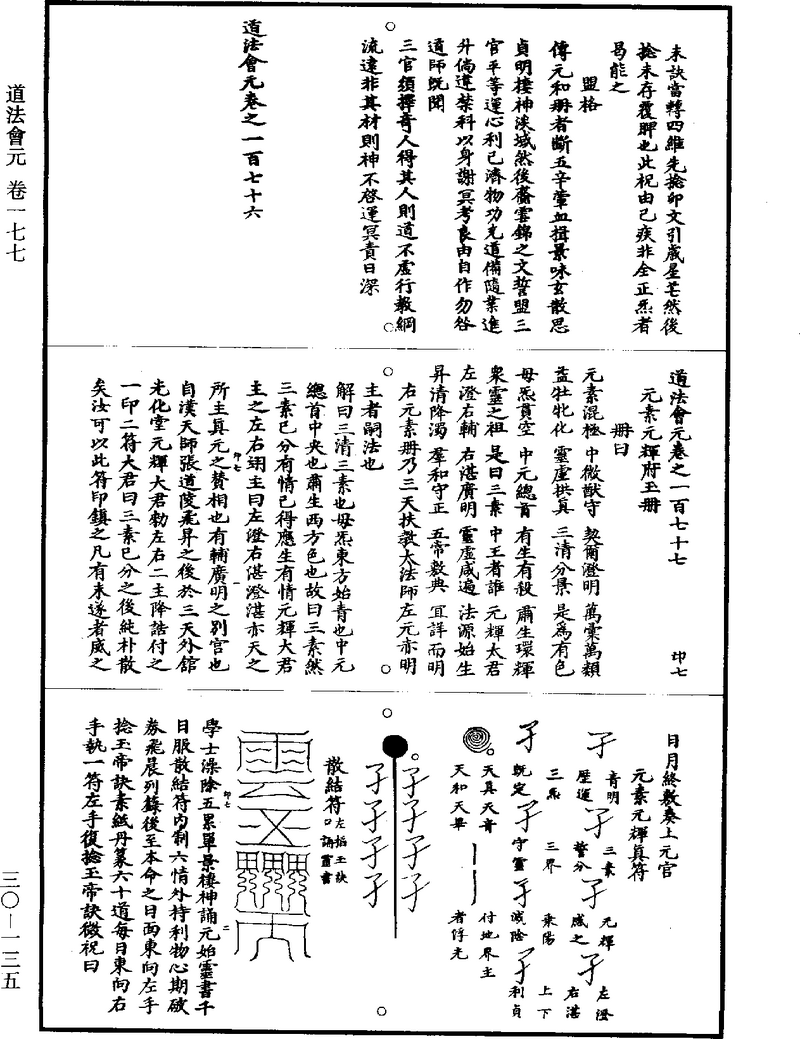 道法會元 卷一七七
三〇—一三五
未訣當轉四維先捻卯文引歲星芒然後
捻未存覆脾也此祝由己疾非全正炁者
曷能之
盟格
傳元和冊者斷五辛葷血揖景味玄散思
貞明棲神淡域然後齎雲錦之文誓盟三
官平等運心利己濟物功充道備隨業進
升倘違禁科以身謝冥考良由自作勿咎
道師既聞
三官須擇奇人得其人則道不虛行教綱
流遠非其材則神不啓運冥責日深
道法會元卷之一百七十六
道法會元卷之一百七十七
印七
元素元輝府玉冊
冊曰
元素混極 中微猷守 契爾澄明 萬彙萬類
益牡牝化 靈虛拱真 三清分景 是為有色
母炁貫空 中元總首 有生有殺 肅生環輝
衆靈之祖 是曰三素 中王者誰 元輝太君
左澄右輔 右湛廣明 靈虛咸遍 法源始生
昇清降濁 羣和守正 五帝敷典 宜詳而明
右元素冊乃三天扶教大法師左元亦明
主者嗣法也
解曰三清三素也母炁東方始青也中元
總首中央也肅生西方色也故曰三素然
三素已分有情已得應生有情元輝大君
主之左右翊主曰左澄右湛澄湛亦天之
所主真元之贊相也有輔廣明之別官也
自漢天師張道陵飛昇之後於三天外舘
光化堂元輝大君勑左右二主降誥付之
一印二符大君曰三素已分之後純朴散
矣汝可以此符印鎮之凡有未遂者咸之
日月終數奏上元宮
元素元輝真符
青明 三素 元輝 左澄
歷運 誓分 咸之 右湛
三炁 三界 乘陽 上下
既定 守靈 滅陰 利貞
天真天音 付地界主
天和天畢 者俘光
散結符 左掐玉訣 口誦靈書
學士澡除五累單景棲神誦元始靈書千
日服散結符內制六情外持利物心期破
券飛晨列籙後至本命之日面東向左手
捻玉帝訣素紙丹篆六十道每日東向右
手執一符左手復捻玉帝訣微祝曰